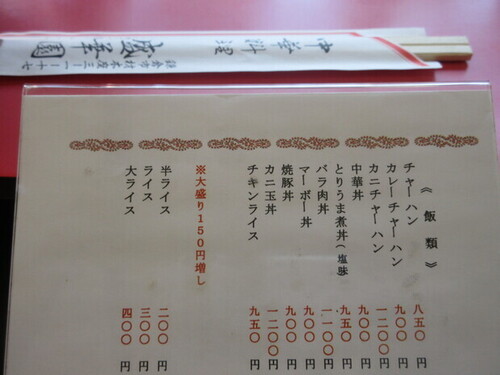 中華料理
慶華園
鎌倉市材木座三ー一ー十七
《飯類》
チャーハン 八五〇円
カレーチャーハン 九〇〇円
カニチャーハン 一二〇〇円
中華丼 九〇〇円
とりうま煮丼(塩味) 九五〇円
バラ肉丼 一一〇〇円
マーボー丼 九〇〇円
焼豚丼 九〇〇円
カニ玉丼 一二〇〇円
チキンライス 九五〇円
※大盛り150円増し
半ライス 二〇〇円
ライス 三〇〇円
大ライス 四〇〇円